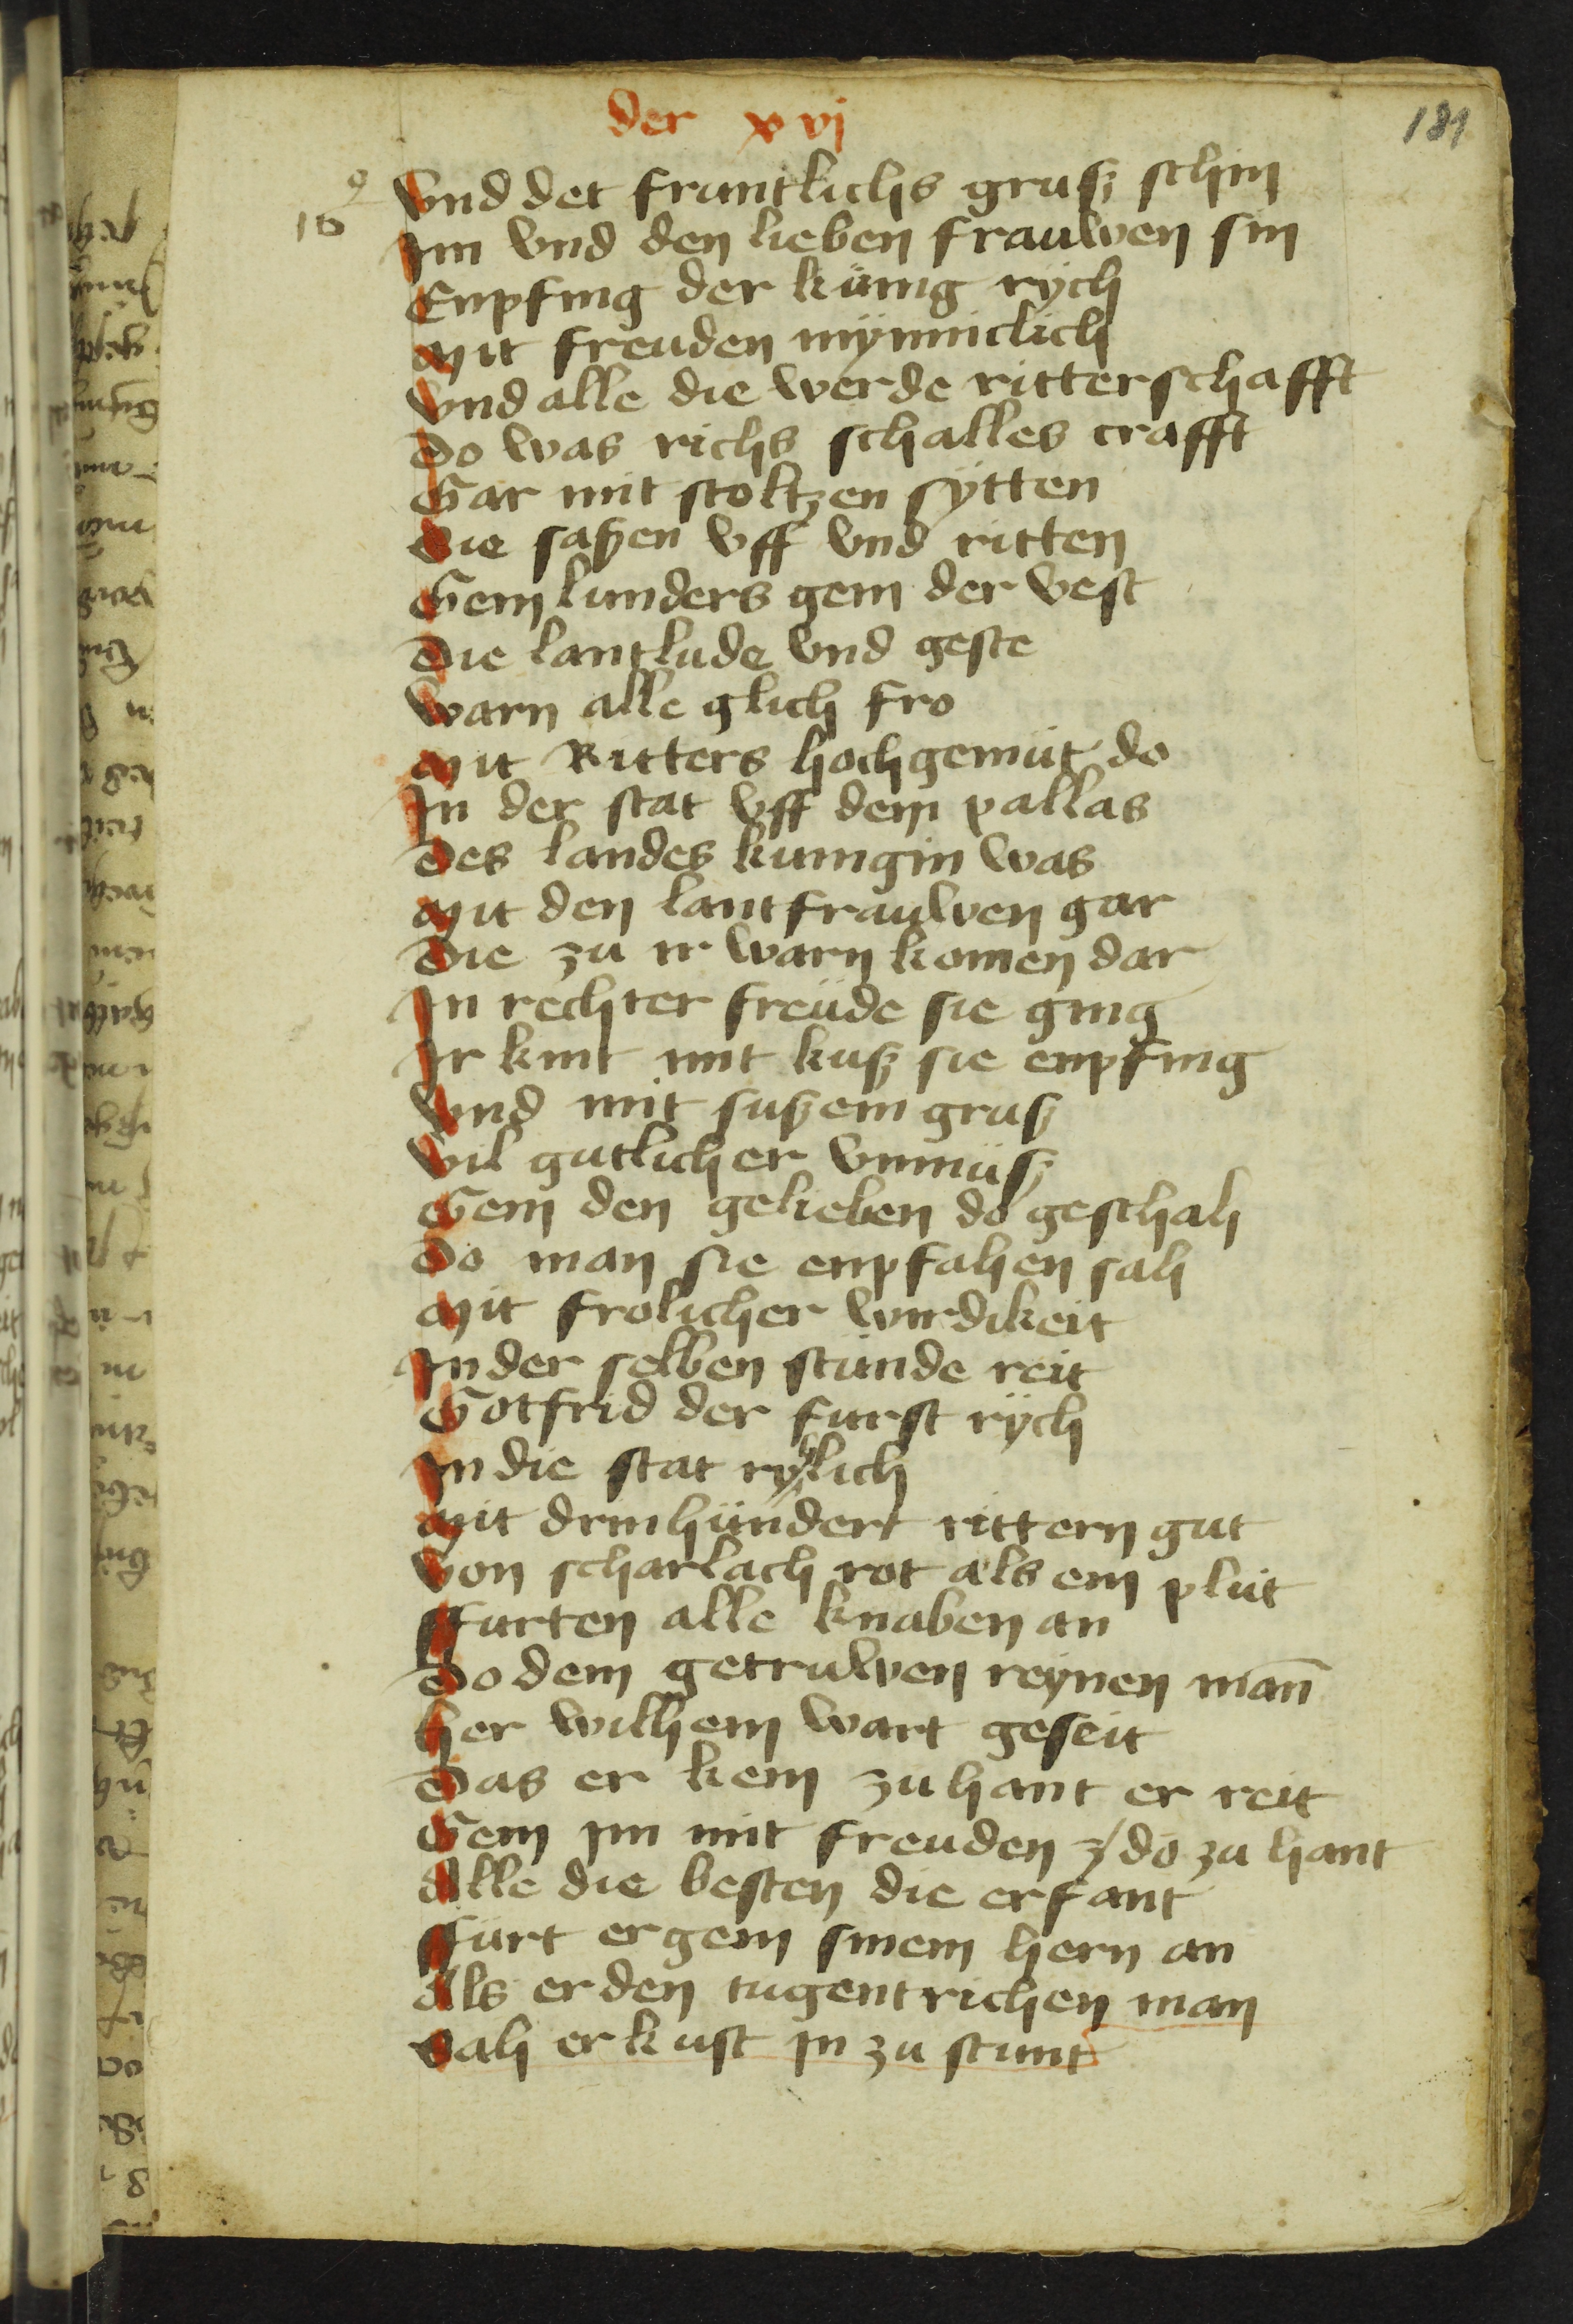 der xvj
181
16
Vnd det fruntlichs gruß schin
Im vnd den lieben frauwen sin
Enpfing der künig rÿch
Mit freuden mÿnniclich
Vnd alle die werde ritterschafft
Do was richs schalles crafft
Gar mit stoltzen sÿtten
Die saßen vff vnd ritten
Gein lunders gein der vest
Die lantlude vnd geste
Warn alle glich fro
Mit Ritters hochgemüt do
In der stat vff dem pallas
Des landes kunigin was
Mit den lantfrauwen gar
Die zu ir warn komen dar
In rechter freüde sie ging
Ir kint mit kuß sie enpfing
Vnd mit sußem gruß
Vil gutlicher vnmüß
Gein den gelieben do geschah
Do man sie enpfahen sah
Mit frolicher wirdikeit
In der selben stunde reit
Gotfrid der furst rÿch
In die stat rylich
Mit drinhündert rittern gut
Von scharlach rot als ein plüt
ffurten alle knaben an
Do dem getruwen reÿnen man̄
Her wilhem wart geseit
Das er kem zuhant er reit
Gein im mit freuden do zu hant
Alle die besten die er fant
ffürt er gein sinem hern an
Als er den tugentrichen man
Sah er kust in zu stunt